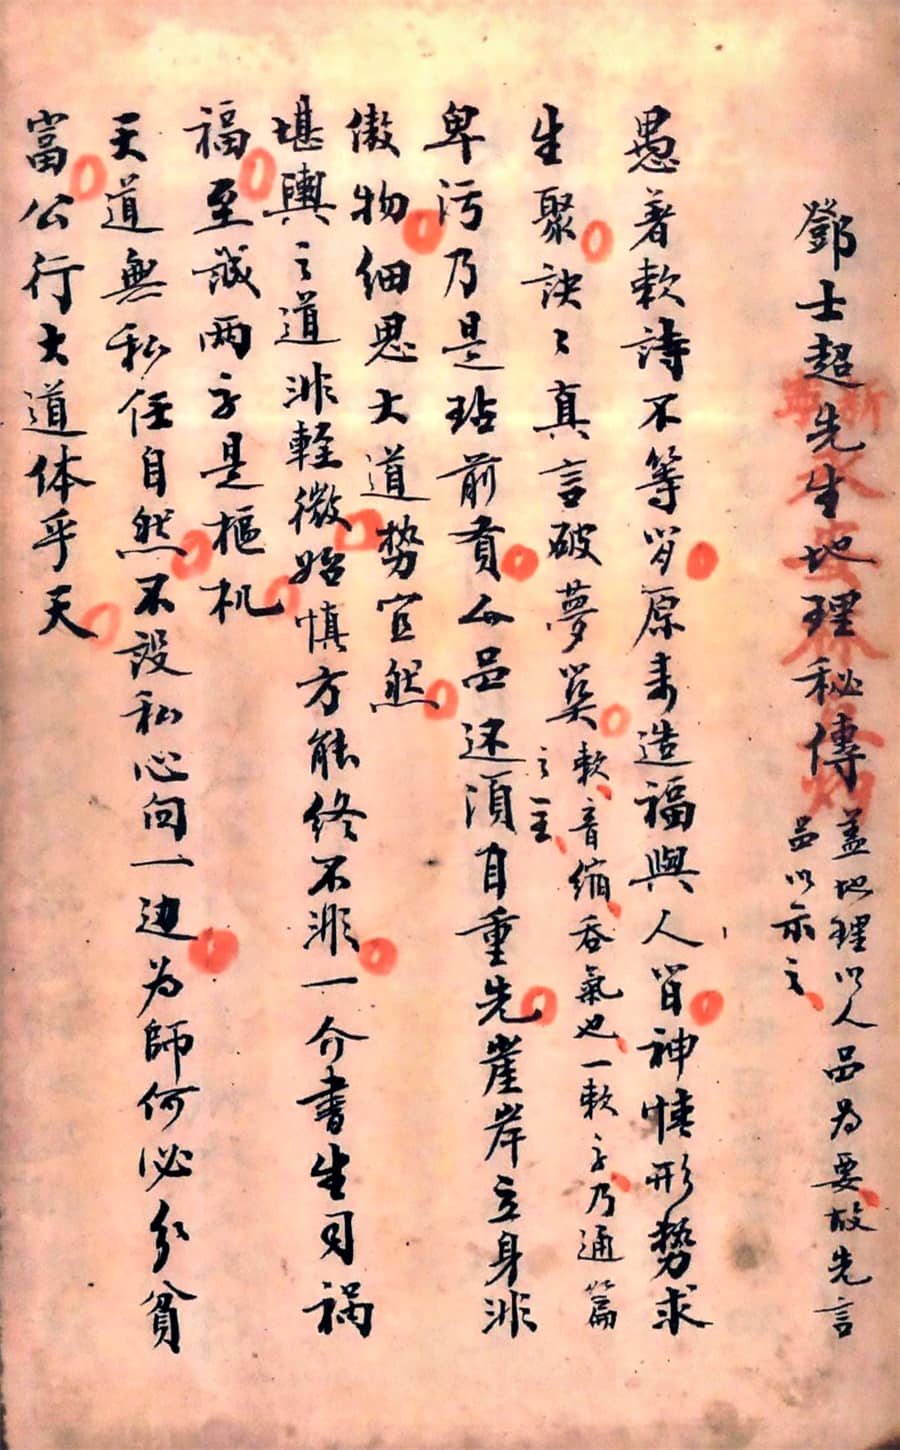 鄧士超先生地理秘傳 蓋地理以人品為要故先言
品以示之
愚著欶詩不等留原來造福與人留神情形勢求
生聚訣々真言破夢奚 欶音縮吞氣也一欶字乃通篇
之主
卑污乃是玷前賢人品还須自重先崖岸立身非
傲物细思大道勢宜然
堪輿之道非輕微始慎方能终不非一介書生司祸
福至誠两字是樞机
天道無私任自然不設私心向一边為師何必分貧
富公行大道体乎天